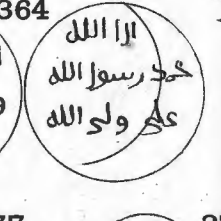 364
الا الله
محمد رسول الله
علی ولی الله